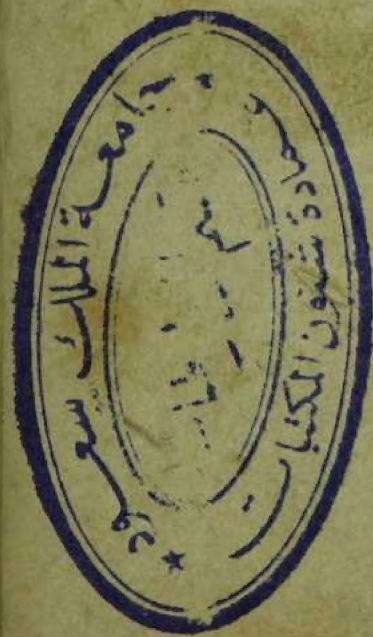 جامعة الملك سعود
عمادة شئون المكتبات